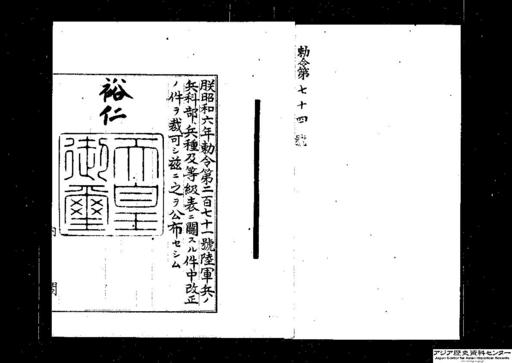 勅令第七十四號
朕昭和六年勅令第二百七十一號陸軍兵ノ
兵科部、兵種及等級表ニ關スル件中改正
ノ件ヲ裁可シ茲ニ之ヲ公布セシム
裕仁
天皇
御璽
内閣
アジア歴史資料センター
Japan Center for Asian Historical Records